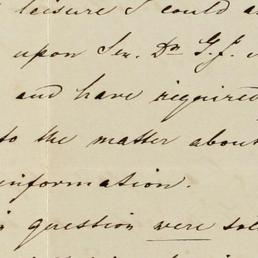 leisure I could
upon Sen. Dn G.J.
and have required
to the matter about
information.
question were sol